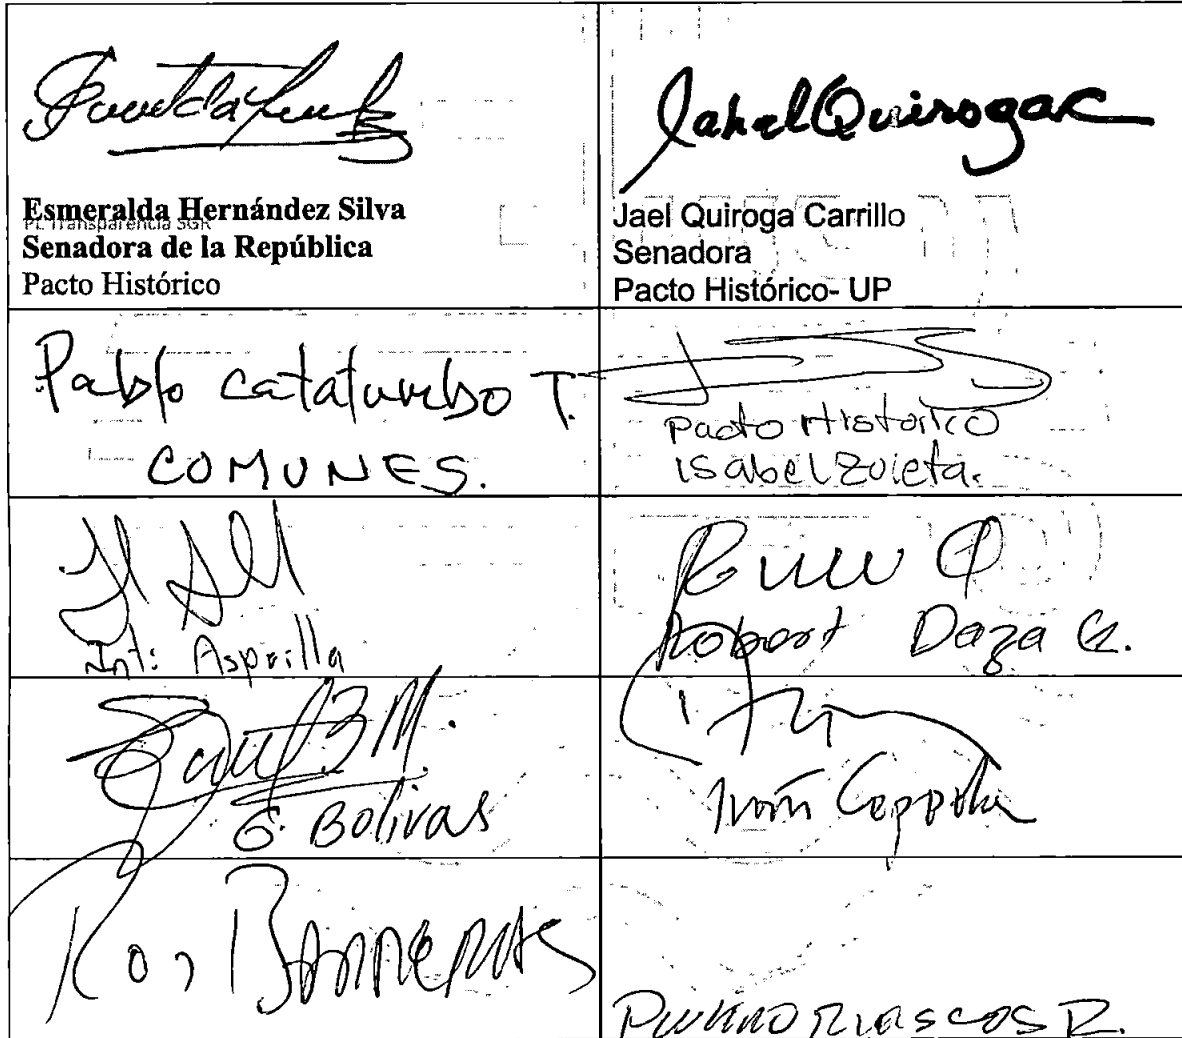 JahelQuirogaC
Esmeralda Hernández Silva
PL Transparencia SGR
Senadora de la República
Pacto Histórico
Jael Quiroga Carrillo
Senadora
Pacto Histórico- UP
Pablo Catatumbo T.
COMUNES.
Pacto Histórico
Isabel Zuleta.
Int: Asprilla
Robert Daza G.
G. Bolivar
Roy Barreras
Riascos R.